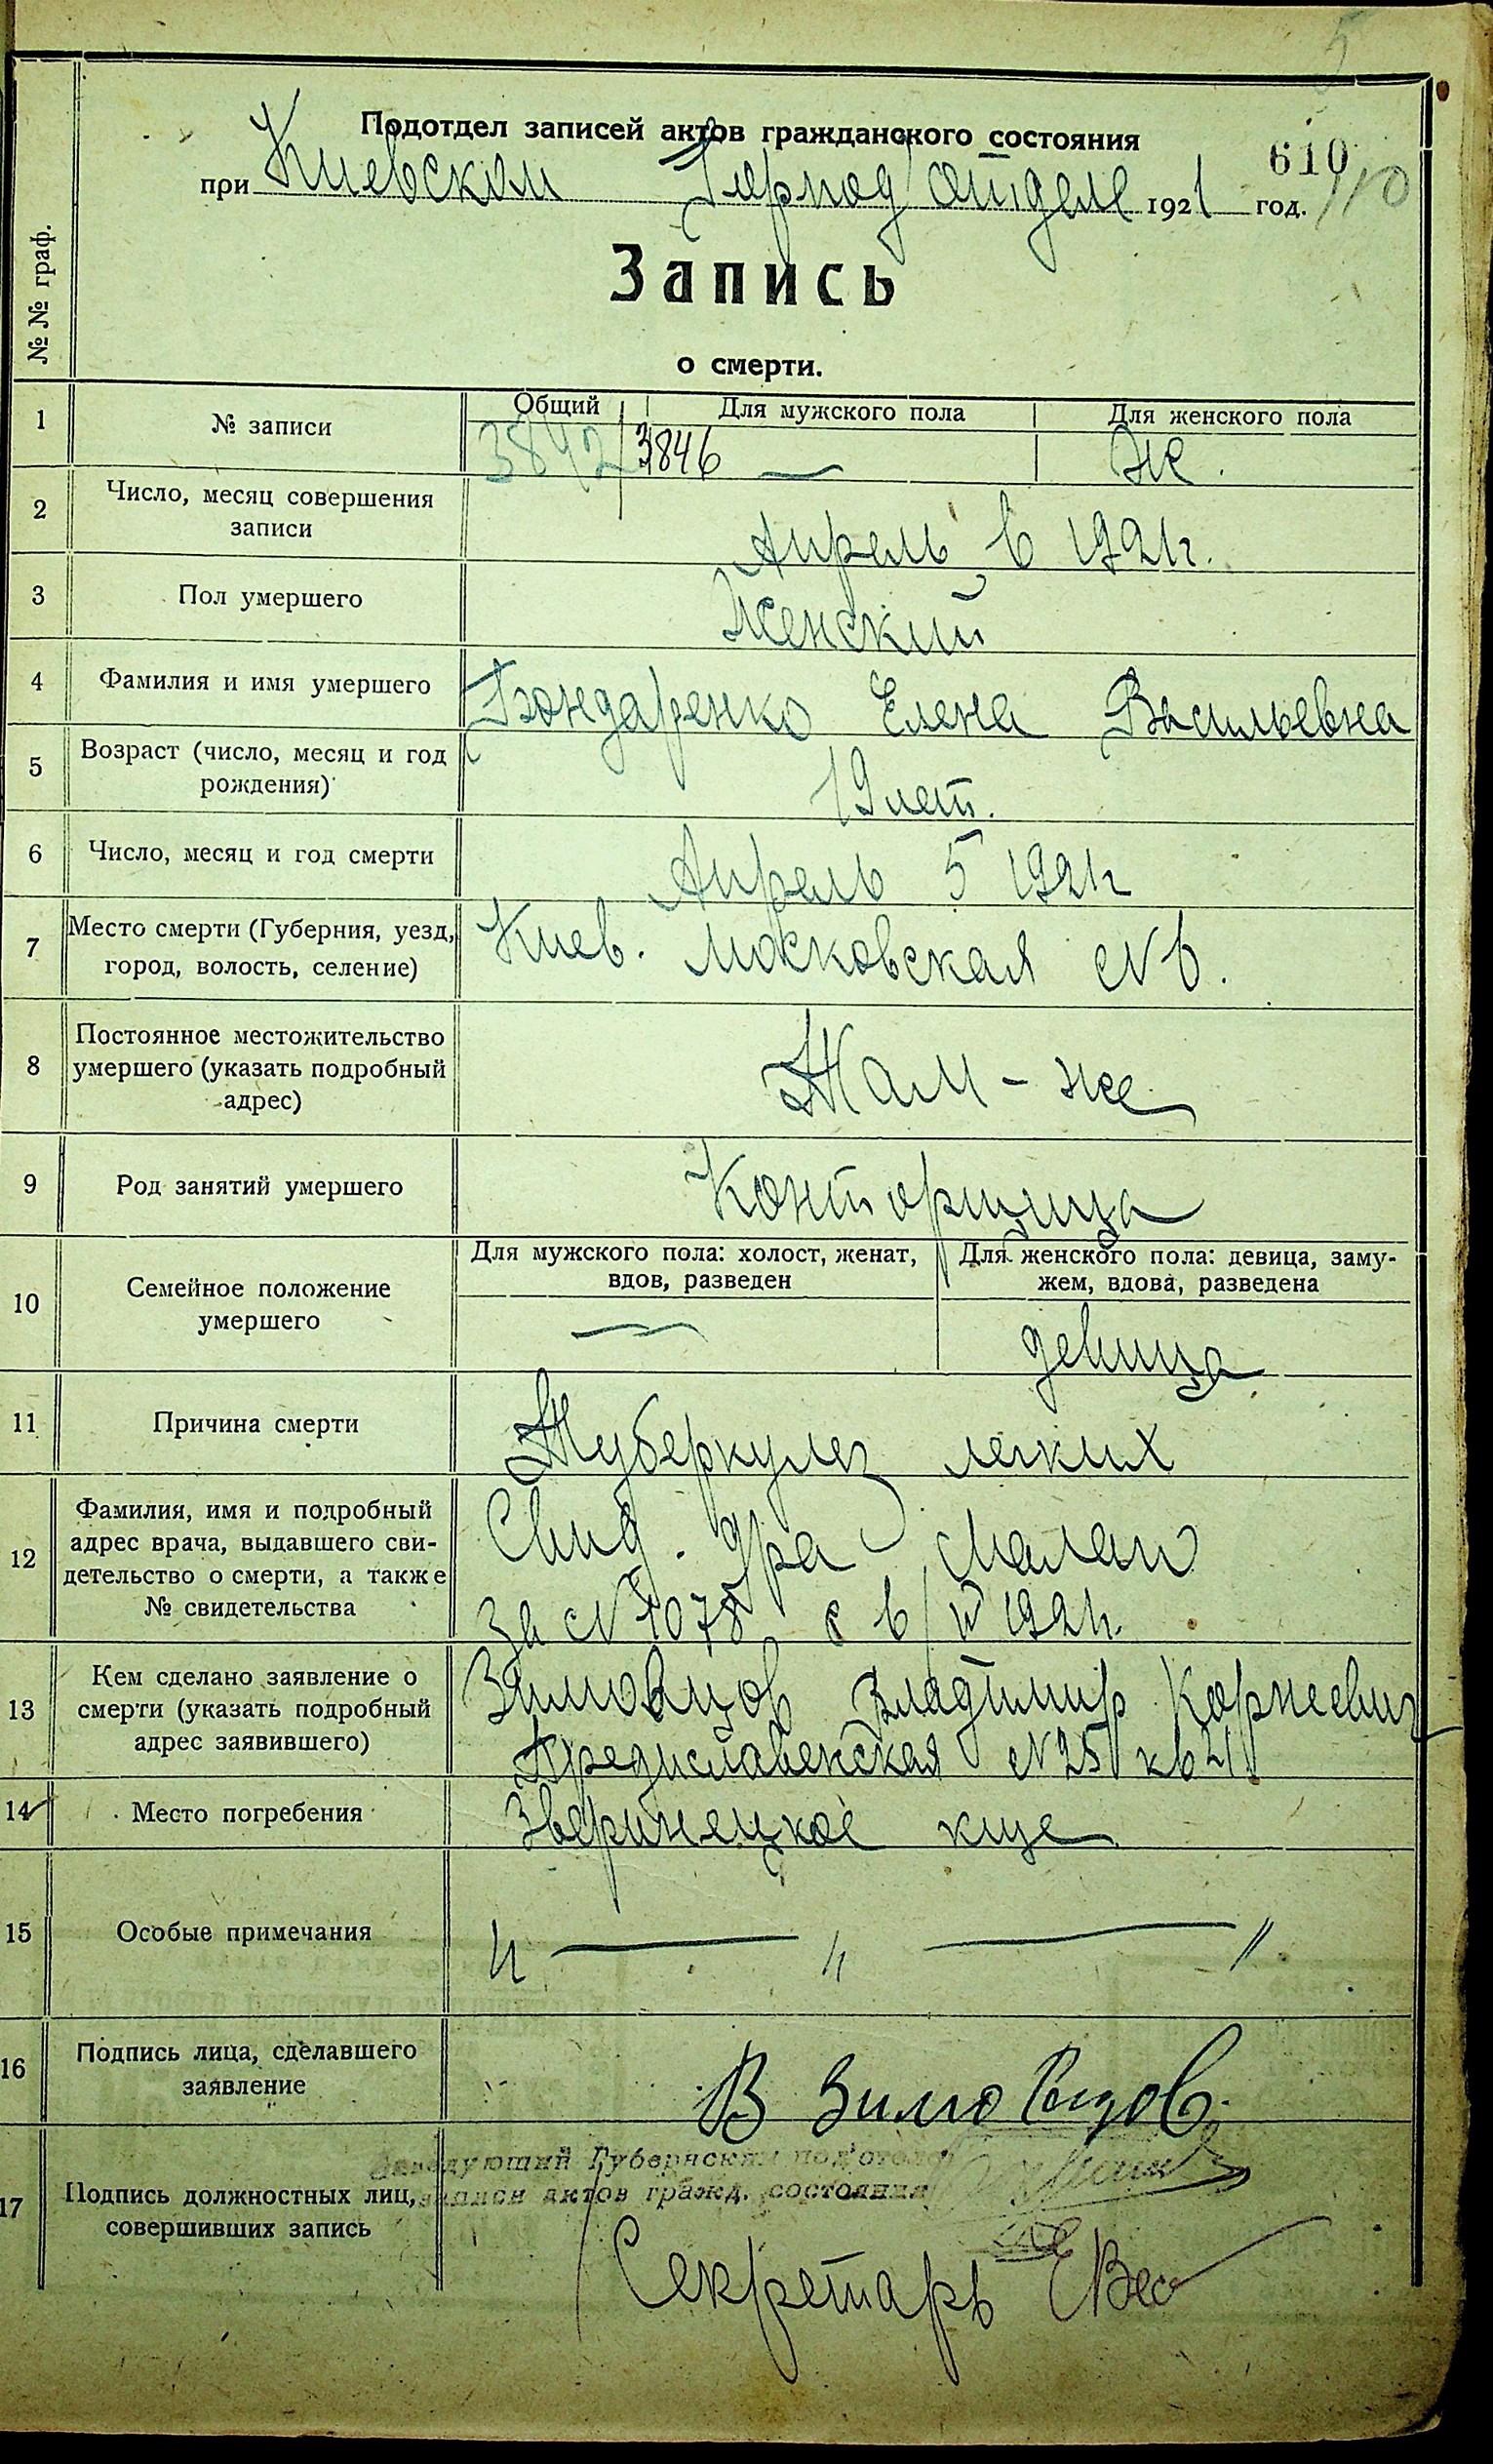 5
Подотдел записей актов гражданского состояния
610
при Киевском Горпод'отделе 1921 год. 110
Запись
о смерти.
№ № граф.
1 № записи Общий Для мужского пола Для женского пола
3842 3846 — же.
2 Число, месяц совершения
записи
Апрель 6 1921г.
3 Пол умершего Женский
4 Фамилия и имя умершего Бондаренко Елена Васильевна
5 Возраст (число, месяц и год
рождения)
19 лет.
6 Число, месяц и год смерти Апрель 5 1921г
7 Место смерти (Губерния, уезд,
город, волость, селение)
Киев. Московская №6.
8 Постоянное местожительство
умершего (указать подробный
адрес)
Там-же
9 Род занятий умершего Конторщица
10 Семейное положение
умершего
Для мужского пола: холост, женат,
вдов, разведен
—
Для женского пола: девица, заму-
жем, вдова, разведена
девица
11 Причина смерти Туберкулез легких
12 Фамилия, имя и подробный
адрес врача, выдавшего сви-
детельство о смерти, а также
№ свидетельства
Свид. д-ра
за №1078 с 6/IV 1921г.
13 Кем сделано заявление о
смерти (указать подробный
адрес заявившего)
Зимовцов Владимир Корнеевич
Предиславенская №25 кв 21
14 Место погребения Зверинецкое к-ще
15 Особые примечания
" — " — "
16 Подпись лица, сделавшего
заявление
В Зимовцов.
17 Подпись должностных лиц,
совершивших запись
Заведующий Губернским под'отделом
записи актов гражд. состояния
Секретарь